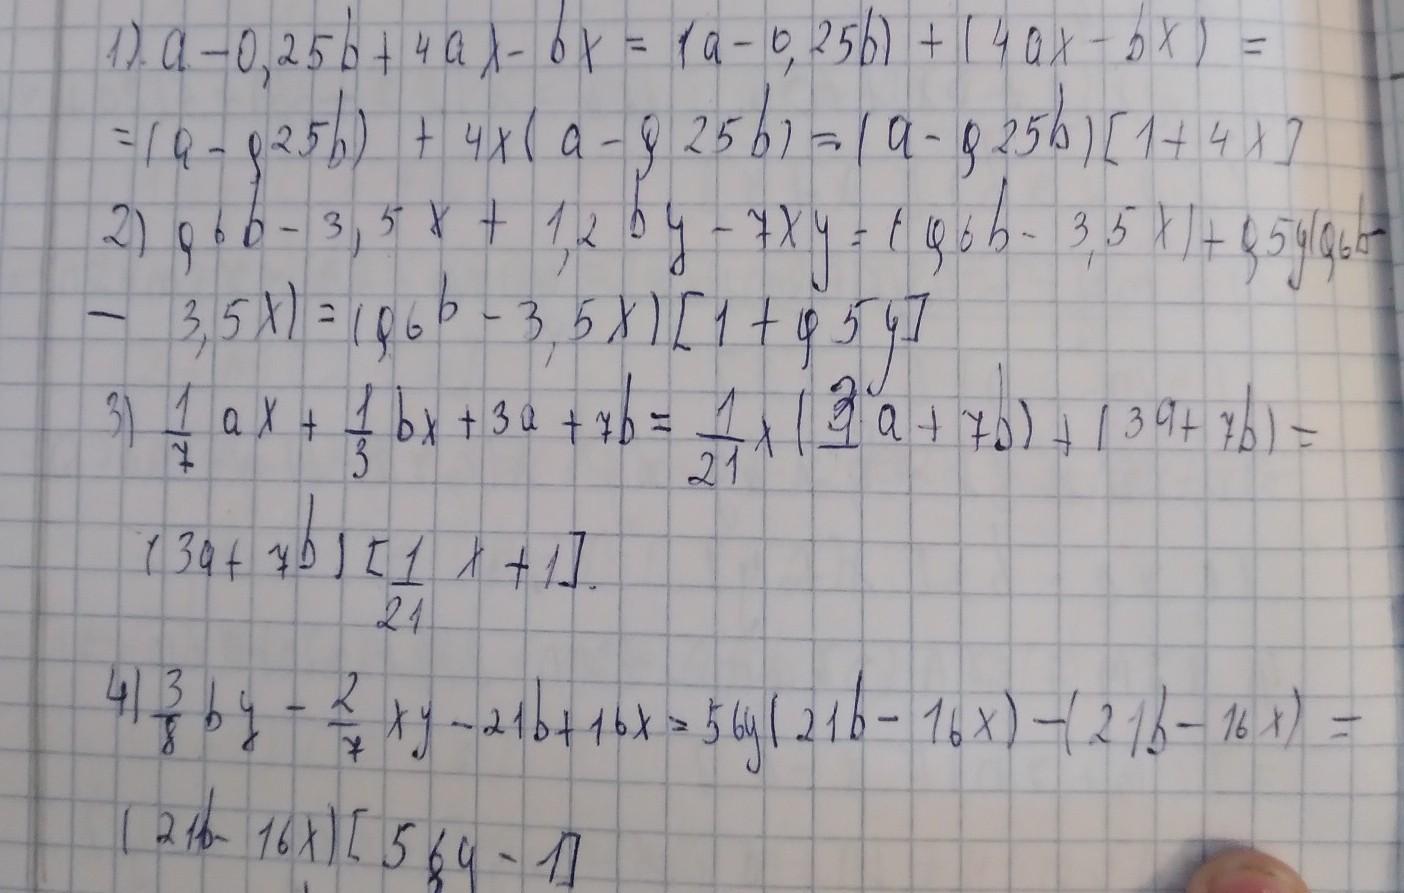 1). a - 0,25b + 4ax - bx = (a - 0,25b) + (4ax - bx) =
= (a - 0,25b) + 4x(a - 0,25b) = (a - 0,25b)[1 + 4x]
2) 0,6b - 3,5x + 1,2by - 7xy = (0,6b - 3,5x) + 0,5y(0,6b -
- 3,5x) = (0,6b - 3,5x)[1 + 0,5y]
3) 1/7 ax + 1/3 bx + 3a + 7b = 1/21 x(3a + 7b) + (3a + 7b) =
(3a + 7b)[1/21 x + 1].
4) 3/8 by - 2/7 xy - 21b + 16x = 56y(21b - 16x) - (21b - 16x) =
(21b - 16x)[56y - 1]